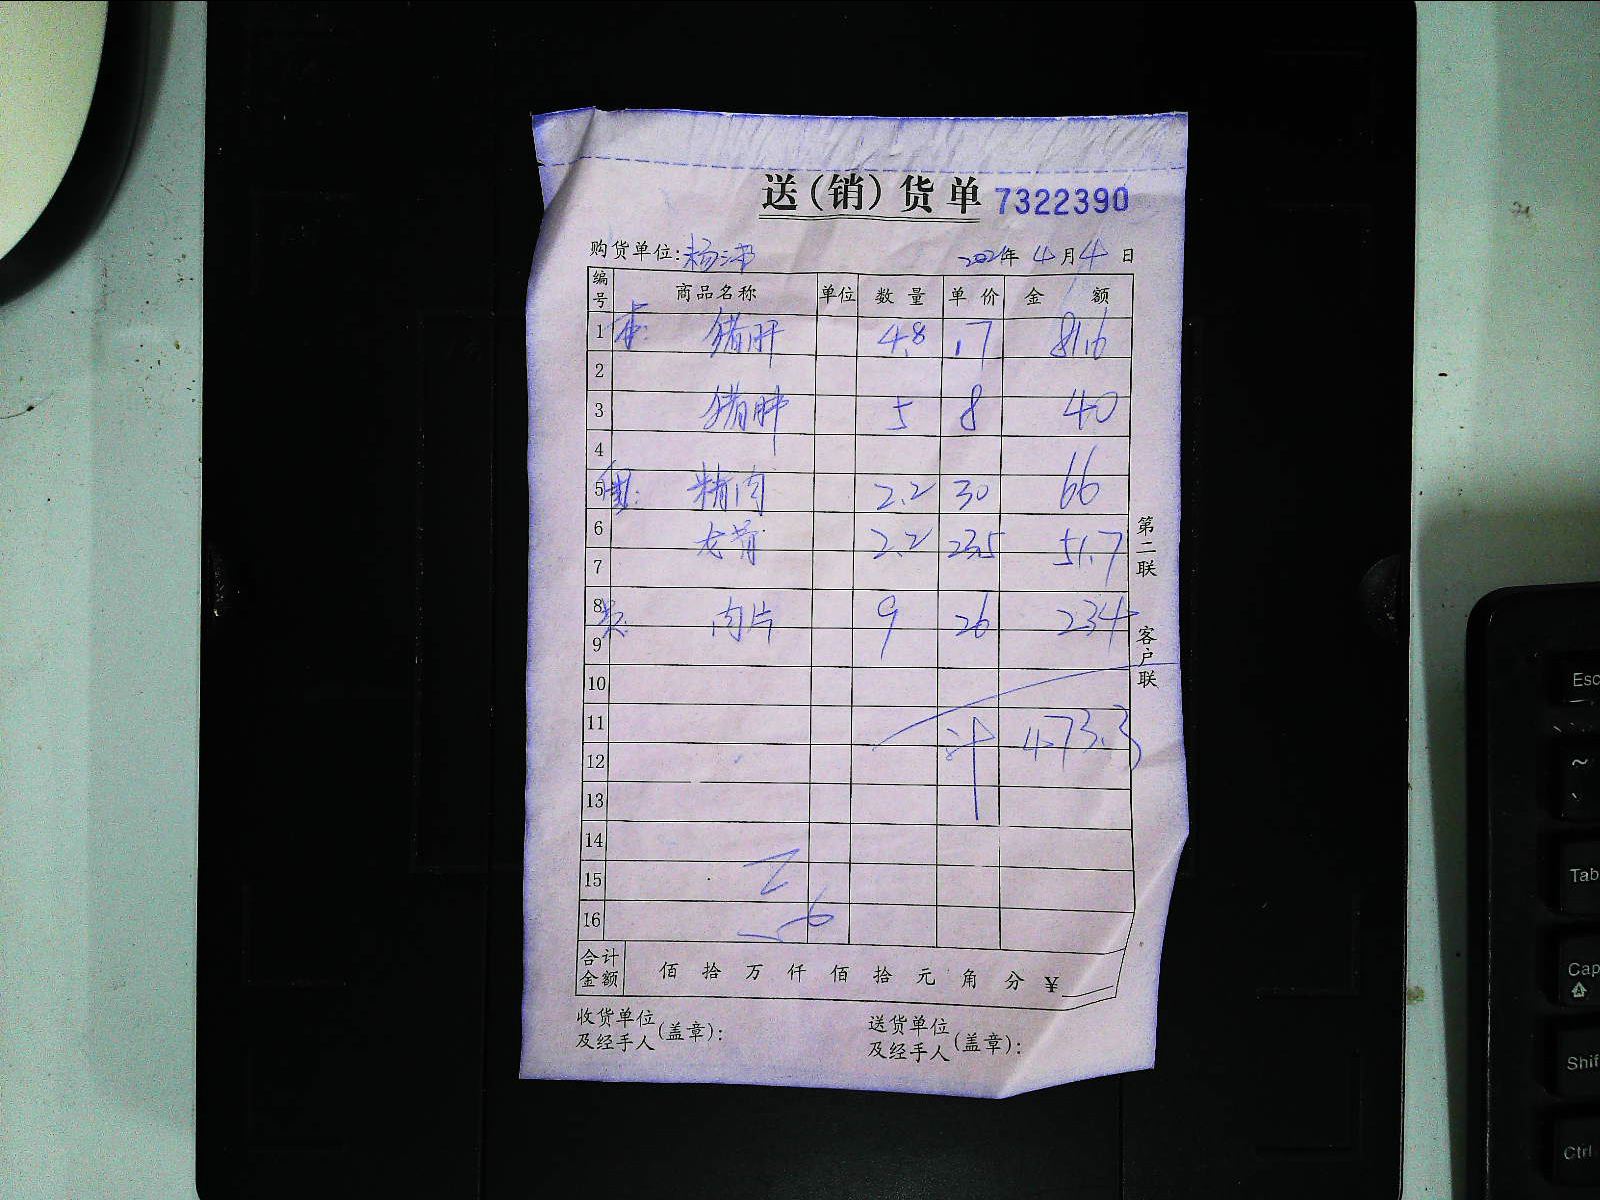 送（销）货单 7322390
购货单位: 2021年 4月4日
编号 商品名称 单位 数量 单价 金额
1 猪肝 4.8 17 81.6
2
3 猪肺 5 8 40
4
5 精肉 2.2 30 66
6 龙骨 2.2 23.5 51.7
7
8 肉片 9 26 234
9
10
11 计 473.3
12
13
14
15
16
合计金额 佰 拾 万 仟 佰 拾 元 角 分 ¥
收货单位及经手人(盖章): 送货单位及经手人(盖章):
第二联 客户联
Esc
~
、
Tab
Cap
Shif
Ctrl